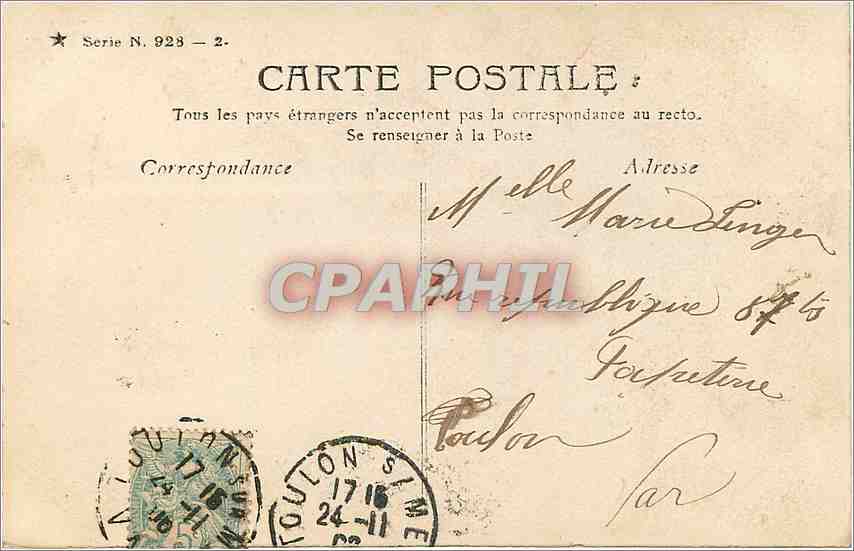 ★ Serie N. 928 — 2.
CARTE POSTALE
Tous les pays étrangers n'acceptent pas la correspondance au recto.
Se renseigner à la Poste
Correspondance
Adresse
Melle Marie Linger
république
Toulon
Var
CPAPHIL
TOULON SUR
17 15
24 - 11
TOULON S/ME
17 15
24 - 11